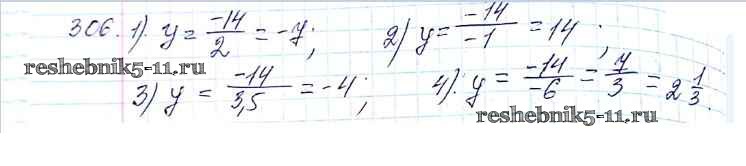 306. 1). y = -14/2 = -7; 2) y = -14/-1 = 14;
reshebnik5-11.ru
3) y = -14/3,5 = -4; 4). y = -14/-6 = 7/3 = 2 1/3.
reshebnik5-11.ru